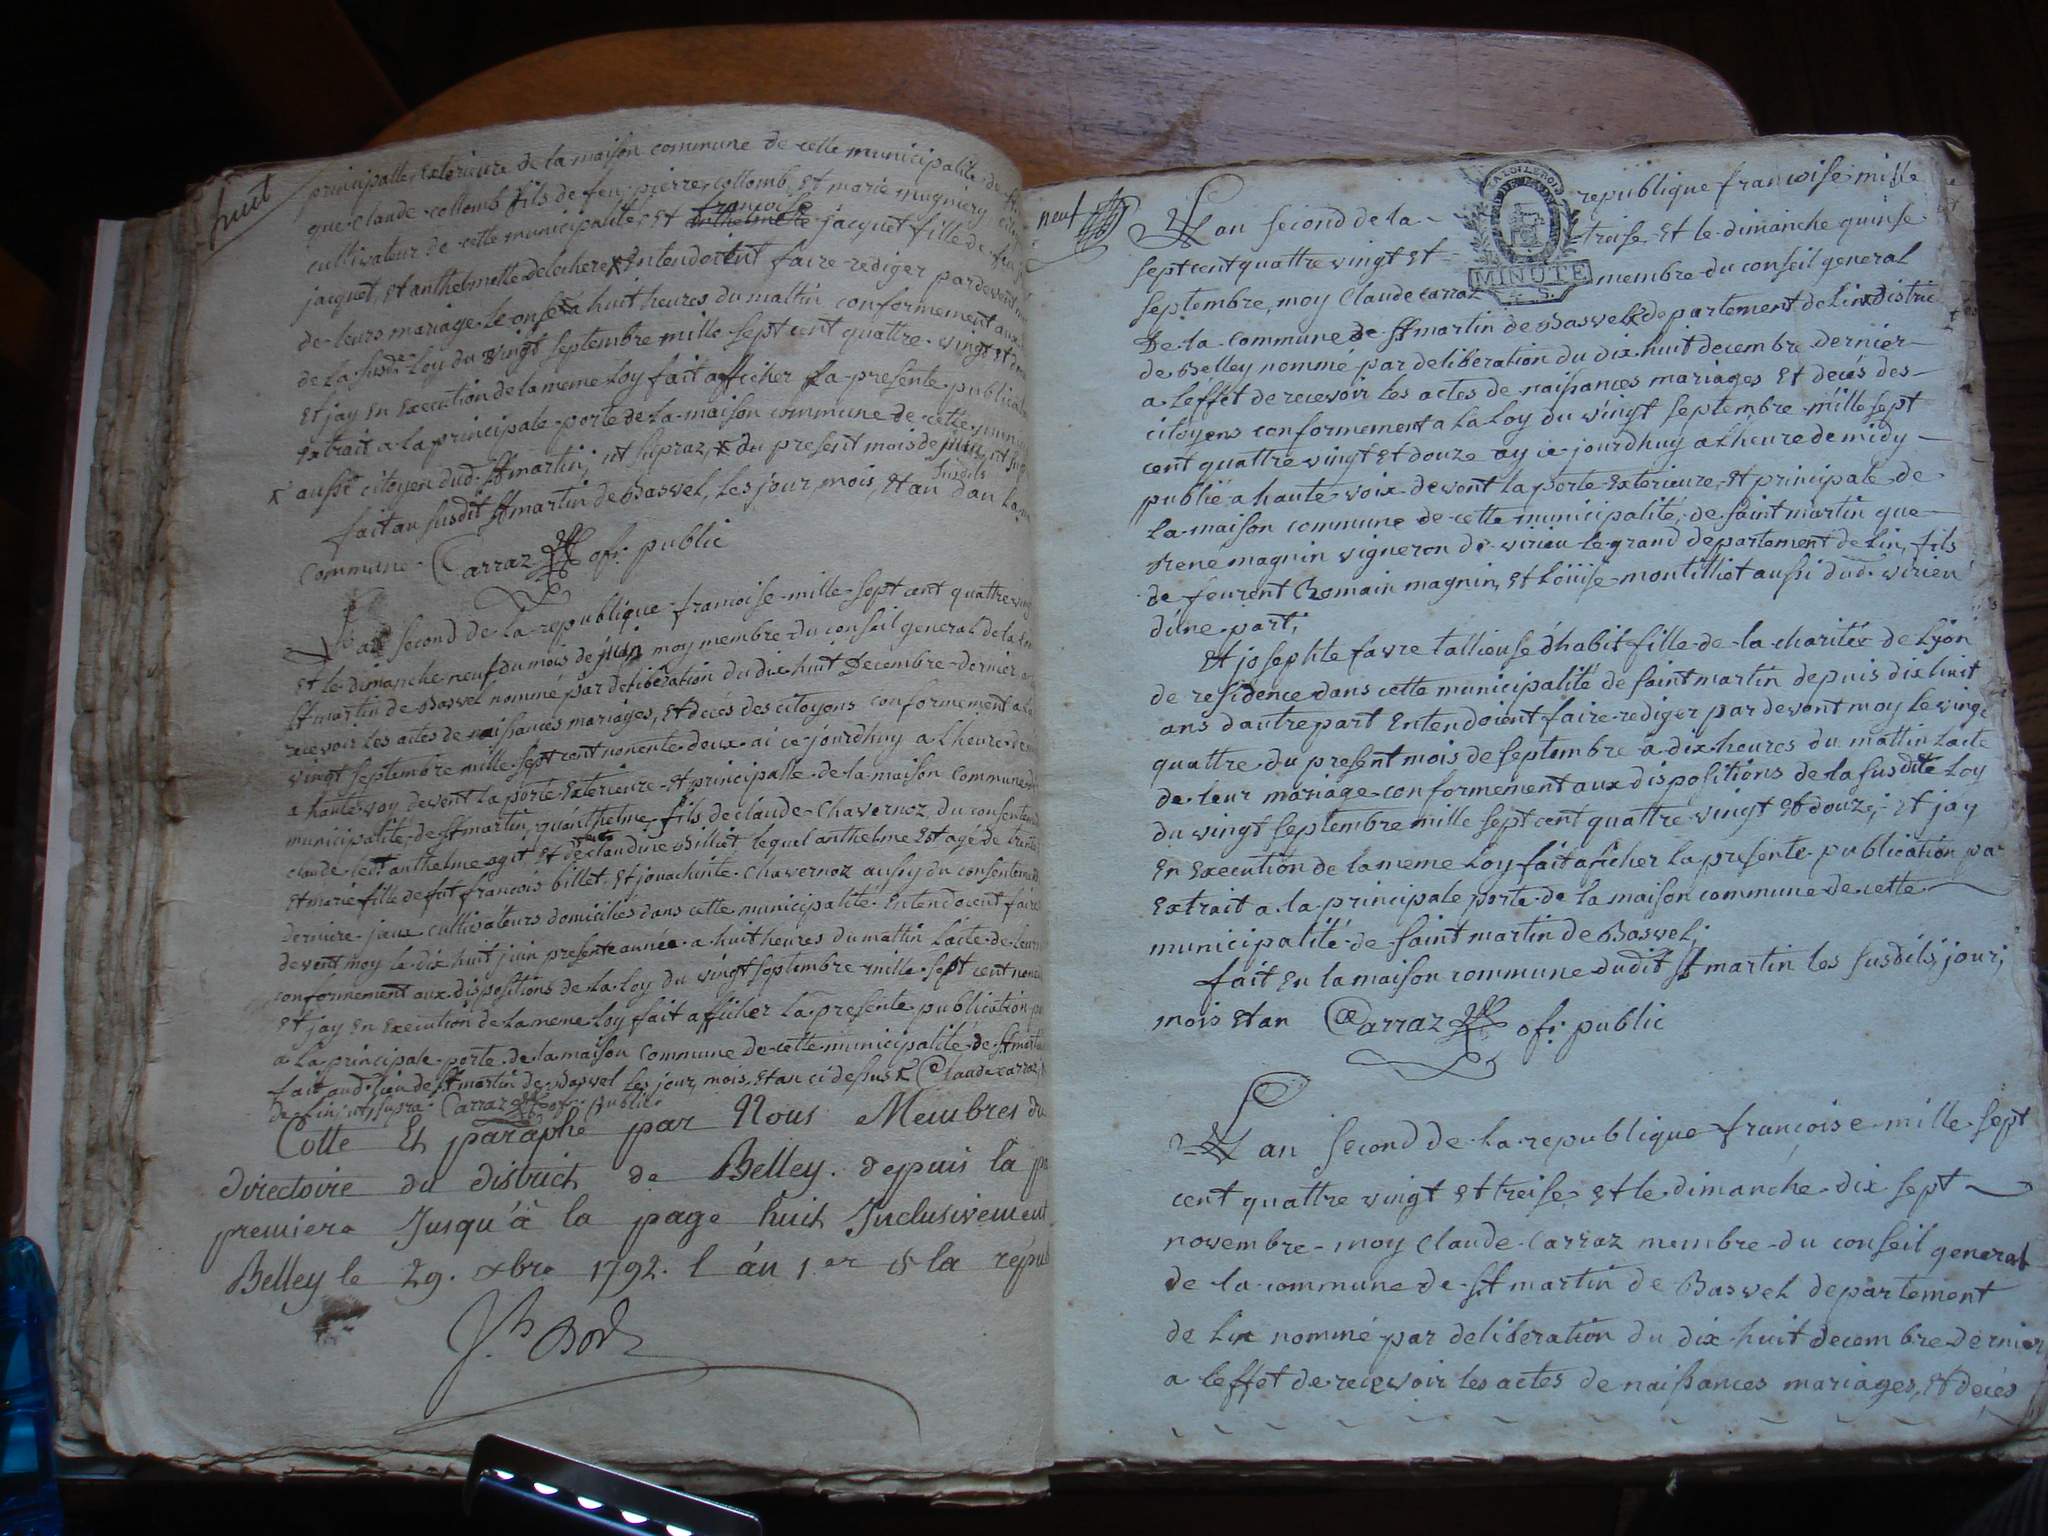 huit
principalle, Exterieure de la maison commune de cette municipalité de
que claude collomb fils de feu pierre collomb, Et marie mugniery
cultivateur de cette municipalité, Et francoise jacquet fille de
jacquet, Et anthelmette delechere x Entendoient faire rediger pardevent
de leurs mariage le onse a huit heures du mattin conformement aux
de la susde Loy du vingt septembre mille sept cent quattre vingt Et
Et jay En Execution de la meme Loy fait afficher La presente publication
Extrait a la principale porte de La maison commune de cette
x aussi citoyen dud. St martin, ut supraz, x du present mois de juin, ut
fait au susdit St martin de Basvel, les jour, mois, Et an susdits dan La
commune Carraz of. public
L'an second de la republique francoise mille sept cent quattre vingt
Et le dimanche neuf du mois de juin moy membre du conseil general de la
St martin de Basvel nommé par deliberation du dix huit Decembre dernier
recevoir les actes de naissances mariages, Et decés des citoyens conformement a la
vingt septembre mille sept cent nonente deux ai ce jourdhuy a Lheure de
a haute voy devent La porte Exterieure Et principalle de la maison Commune
municipalité de St martin, qu'anthelme, fils de claude Chavernoz, du consentement
claude led. anthelme agit Et de claudine Billiet, lequel anthelme Est agé de
Et marie fille de fut francois billet, Et jouachinte Chavernoz aussy du consentement
derniere, jaux cultivateurs domiciliés dans cette municipalité Entendoient faire
devent moy le dix huit juin presente année a huit heures du mattin Lacte de leur
conformement aux dispositions de la Loy du vingt septembre mille sept cent
Et jay En Execution de la meme Loy fait afficher La presente publication
a la principale porte de la maison commune de cette municipalité de St martin
fait aud. lieu de St martin de Basvel les jour, mois, Et an ci dessus x Claude carraz
de Lin, ut supra Carraz of. public
Cotté Et paraphé par Nous Membres du
directoire du district de Belley. depuis la
premiere Jusqu'à la page huit Inclusivement
Belley le 29. xbre 1792. l'an 1er de la
neuf
LA LOI LE ROI
MINUTE
4 S.
L'an second de la republique francoise mille
sept cent quattre vingt Et treise, Et le dimanche quinse
septembre, moy Claude carraz membre du conseil general
De la commune de St martin de Basvel departement de Lin district
de Belley nommé par deliberation du dix huit decembre dernier
a Leffet de recevoir les actes de naissances mariages Et decés des
citoyens conformement a La Loy du vingt septembre mille sept
cent quattre vingt Et douze ay ce jourdhuy a Lheure de midy
publié a haute voix devent La porte Exterieure, Et principale de
La maison commune de cette municipalité, de saint martin que
Rene magnin vigneron de virieu le grand departement de Lin, fils
de feurent Romain magnin, Et Loüise montilliet aussi dud. virieu
d'une part,
Et josephte favre tallieuse d'habit fille de la charitée de Lyon
de residence dans cette municipalité de saint martin depuis dix huit
ans dautre part Entendoient faire rediger par devant moy le vingt
quattre du present mois de septembre a dix heures du mattin Lacte
de leur mariage conformement aux dispositions de la susdite Loy
du vingt septembre mille sept cent quattre vingt Et douze, Et jay
En Execution de la meme Loy fait aficher la presente publication pa
Extrait a la principale porte de la maison commune de cette
municipalité de saint martin de Basvel,
fait En la maison commune dudit St martin les susdits jour,
mois Et an Carraz of. public
L'an second de la republique françoise mille sept
cent quattre vingt Et treise, Et le dimanche dix sept
novembre moy Claude Carraz membre du conseil general
de la commune de St martin de Basvel departement
de Lin nommé par deliberation du dix huit decembre dernier
a leffet de recevoir les actes de naissances mariages, Et decés